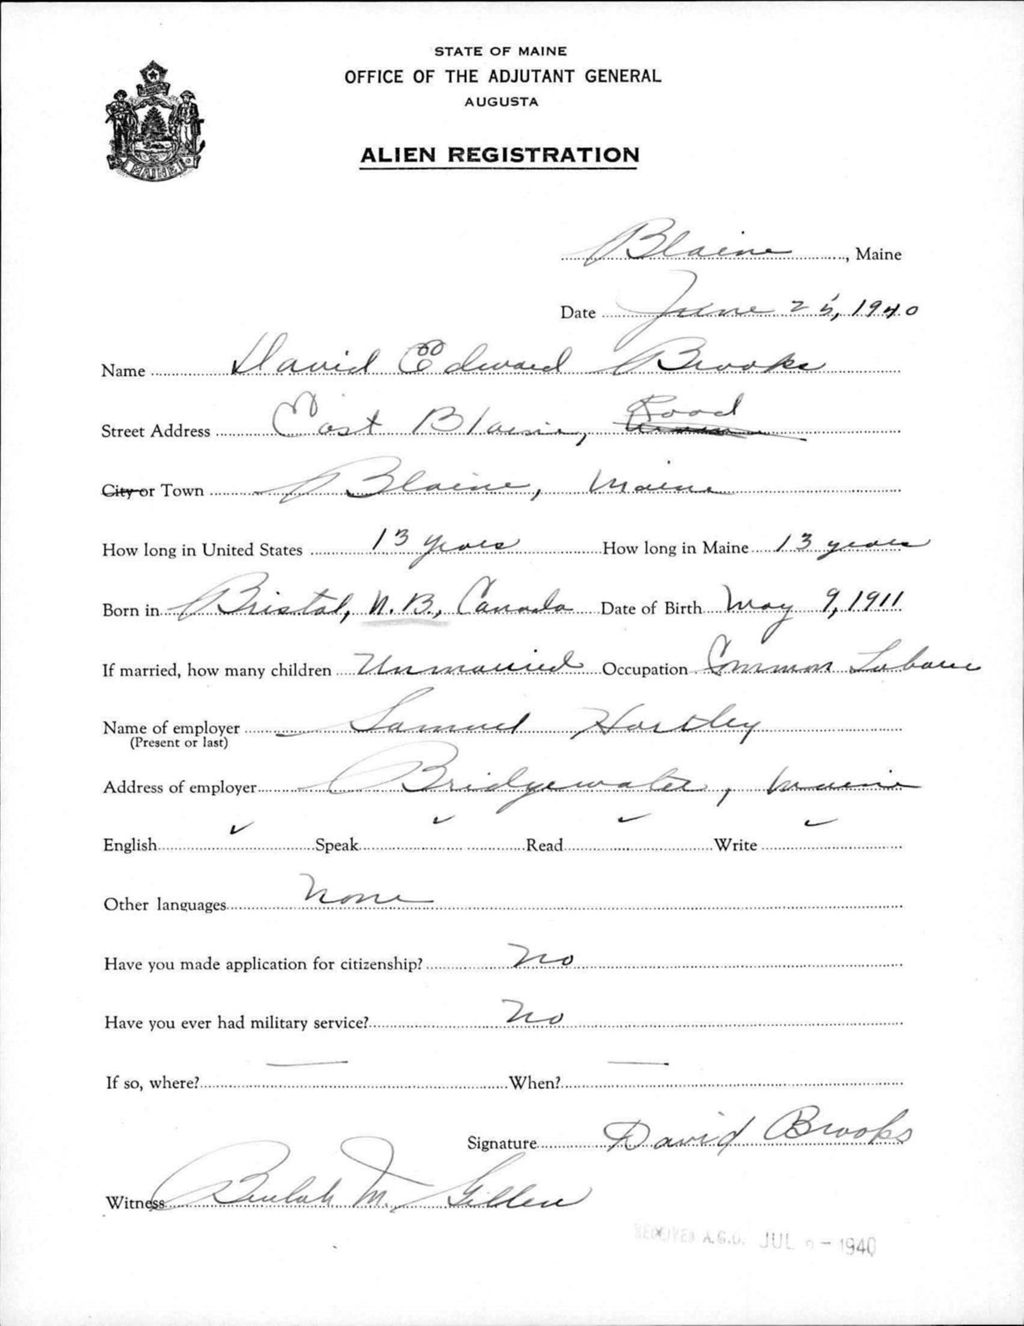 STATE OF MAINE
OFFICE OF THE ADJUTANT GENERAL
AUGUSTA
ALIEN REGISTRATION
MAINE
Blaine, Maine
Date June 25, 1940
Name David Edward Brooks
Street Address East Blaine, Road
City or Town Blaine, Maine
How long in United States 13 years How long in Maine 13 years
Born in Bristol, N.B., Canada Date of Birth May 9, 1911
If married, how many children Unmarried Occupation Common Labour
Name of employer Samuel Hartley
(Present or last)
Address of employer Bridgewater, Maine
English ✓ Speak ✓ Read ✓ Write ✓
Other languages None
Have you made application for citizenship? No
Have you ever had military service? No
If so, where? — When? —
Signature David Brooks
Witness Beulah M. Gillen
RECEIVED A.G.O. JUL - 1940